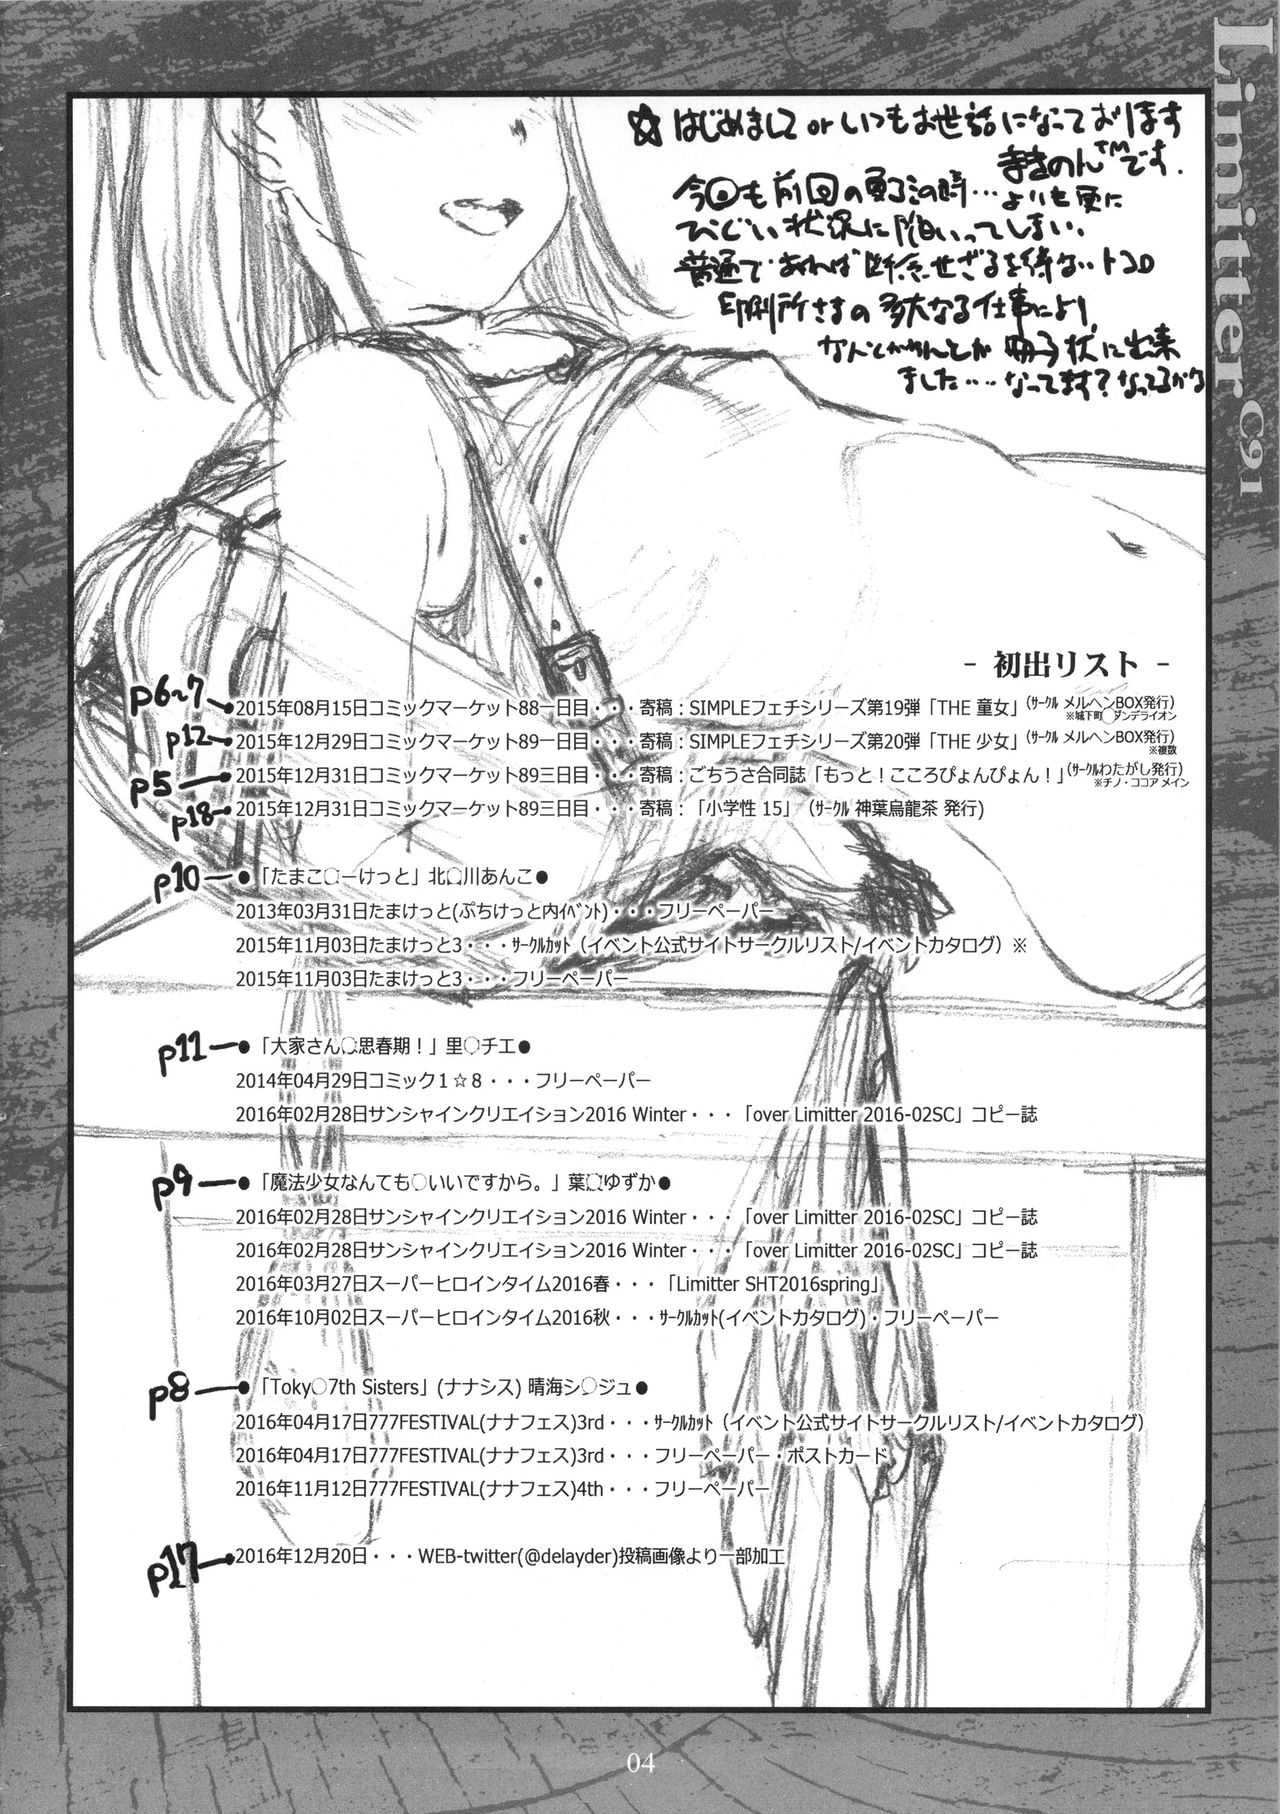 Limitter.C91
☆はじめまして or いつもお世話になっております
まきのん™です.
今回も前回の夏コミの時…よりも更に
ひどい状況に陥いってしまい、
普通であれば断念せざるを得ないトコロ
印刷所さまの多大なる仕事により、
なんとかかんとか冊子状に出来
ました‥‥なってます?なってるかな
- 初出リスト -
p6~7 2015年08月15日コミックマーケット88一日目・・・寄稿：SIMPLEフェチシリーズ第19弾「THE 童女」（ｻｰｸﾙ メルヘンBOX発行）
※城下町◯ダンデライオン
p12 2015年12月29日コミックマーケット89一日目・・・寄稿：SIMPLEフェチシリーズ第20弾「THE 少女」（ｻｰｸﾙ メルヘンBOX発行）
※複数
p5 2015年12月31日コミックマーケット89三日目・・・寄稿：ごちうさ合同誌「もっと！こころぴょんぴょん！」（ｻｰｸﾙわたがし発行）
※チノ・ココア メイン
p18 2015年12月31日コミックマーケット89三日目・・・寄稿：「小学性 15」（ｻｰｸﾙ 神葉烏龍茶 発行)
p10 ●「たまこ◯ーけっと」北◯川あんこ●
2013年03月31日たまけっと(ぷちけっと内ｲﾍﾞﾝﾄ)・・・フリーペーパー
2015年11月03日たまけっと3・・・ｻｰｸﾙｶｯﾄ（イベント公式サイトサークルリスト/イベントカタログ）※
2015年11月03日たまけっと3・・・フリーペーパー
p11 ●「大家さん◯思春期！」里◯チエ●
2014年04月29日コミック１☆８・・・フリーペーパー
2016年02月28日サンシャインクリエイション2016 Winter・・・「over Limitter 2016-02SC」コピー誌
p9 ●「魔法少女なんても◯いいですから。」葉◯ゆずか●
2016年02月28日サンシャインクリエイション2016 Winter・・・「over Limitter 2016-02SC」コピー誌
2016年02月28日サンシャインクリエイション2016 Winter・・・「over Limitter 2016-02SC」コピー誌
2016年03月27日スーパーヒロインタイム2016春・・・「Limitter SHT2016spring」
2016年10月02日スーパーヒロインタイム2016秋・・・ｻｰｸﾙｶｯﾄ(イベントカタログ)・フリーペーパー
p8 ●「Toky◯7th Sisters」(ナナシス) 晴海シ◯ジュ●
2016年04月17日777FESTIVAL(ナナフェス)3rd・・・ｻｰｸﾙｶｯﾄ（イベント公式サイトサークルリスト/イベントカタログ）
2016年04月17日777FESTIVAL(ナナフェス)3rd・・・フリーペーパー・ポストカード
2016年11月12日777FESTIVAL(ナナフェス)4th・・・フリーペーパー
p17 2016年12月20日・・・WEB-twitter(@delayder)投稿画像より一部加工
04